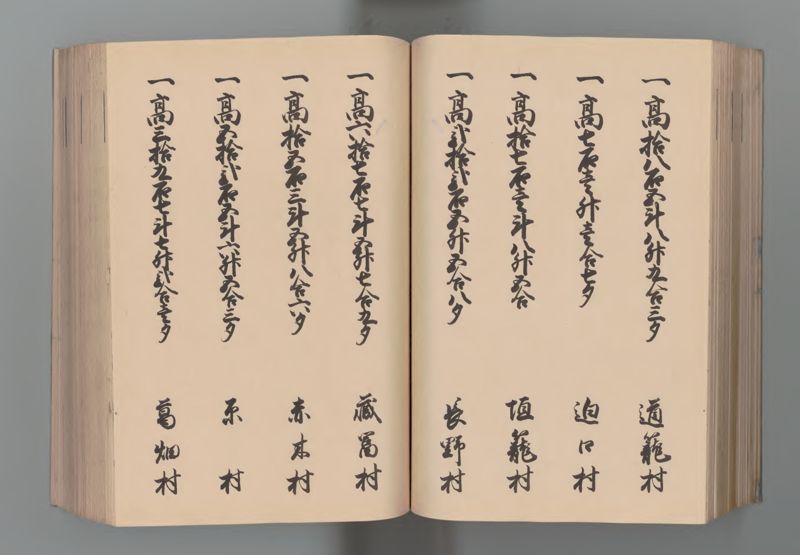 一高拾八石五斗八升九合三夕 道籠村
一高七石壱升壱合七夕 迫口村
一高拾七石壱斗八升五合 垣籠村
一高弐拾弐石五升五合八夕 長野村
一高六拾七石七斗五升七合九夕 蔵冨村
一高拾五石三斗五升八合六夕 赤木村
一高五拾弐石五斗六升五合三夕 原村
一高三拾九石七斗七升弐合壱夕 葛畑村